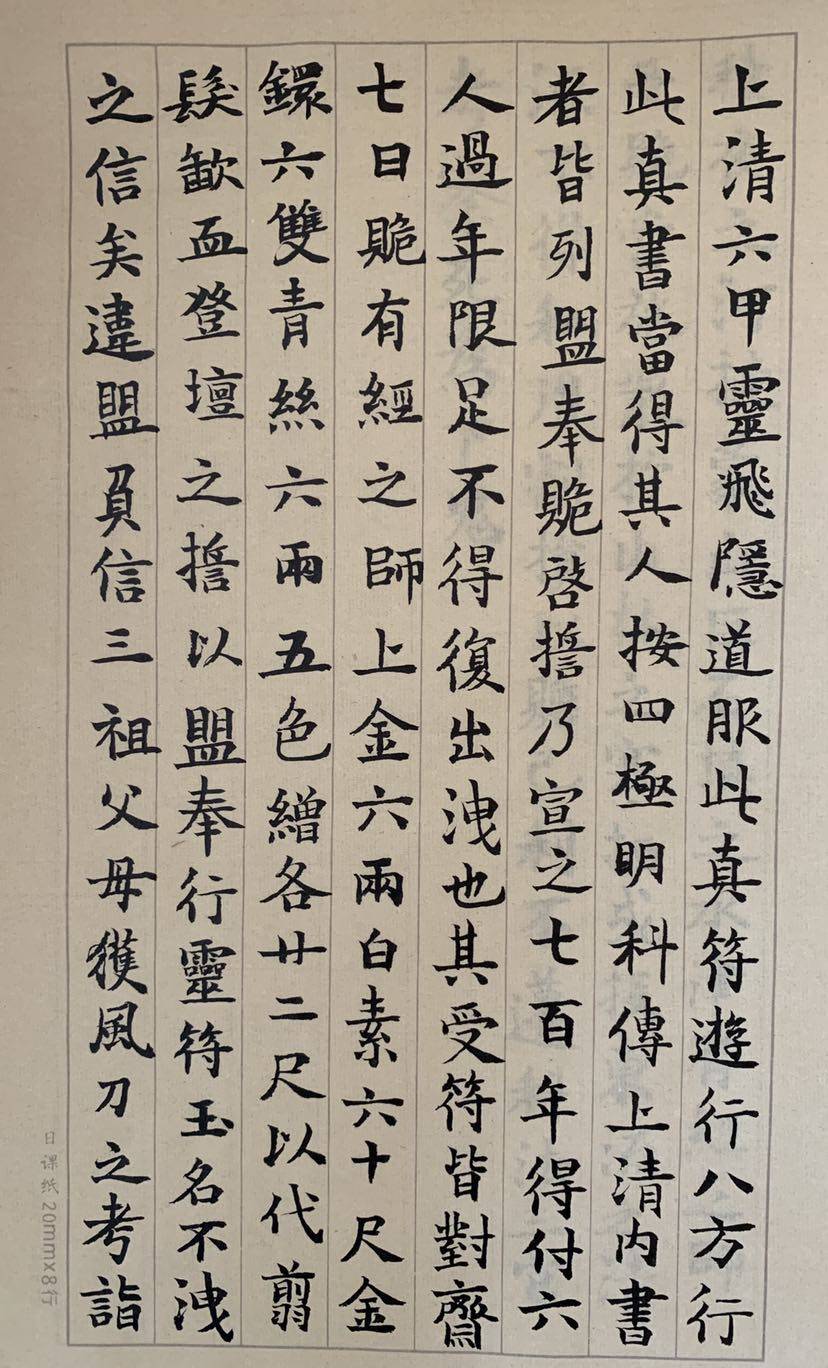 上清六甲靈飛隱道服此真符遊行八方行
此真書當得其人按四極明科傳上清內書
者皆列盟奉貹啓誓乃宣之七百年得付六
人過年限足不得復出洩也其受符皆對齋
七日貹有經之師上金六兩白素六十尺金
鐶六雙青絲六兩五色繒各廿二尺以代翦
髮歃血登壇之誓以盟奉行靈符玉名不洩
之信矣違盟負信三祖父母獲風刀之考詣
日课纸 20mmx8行